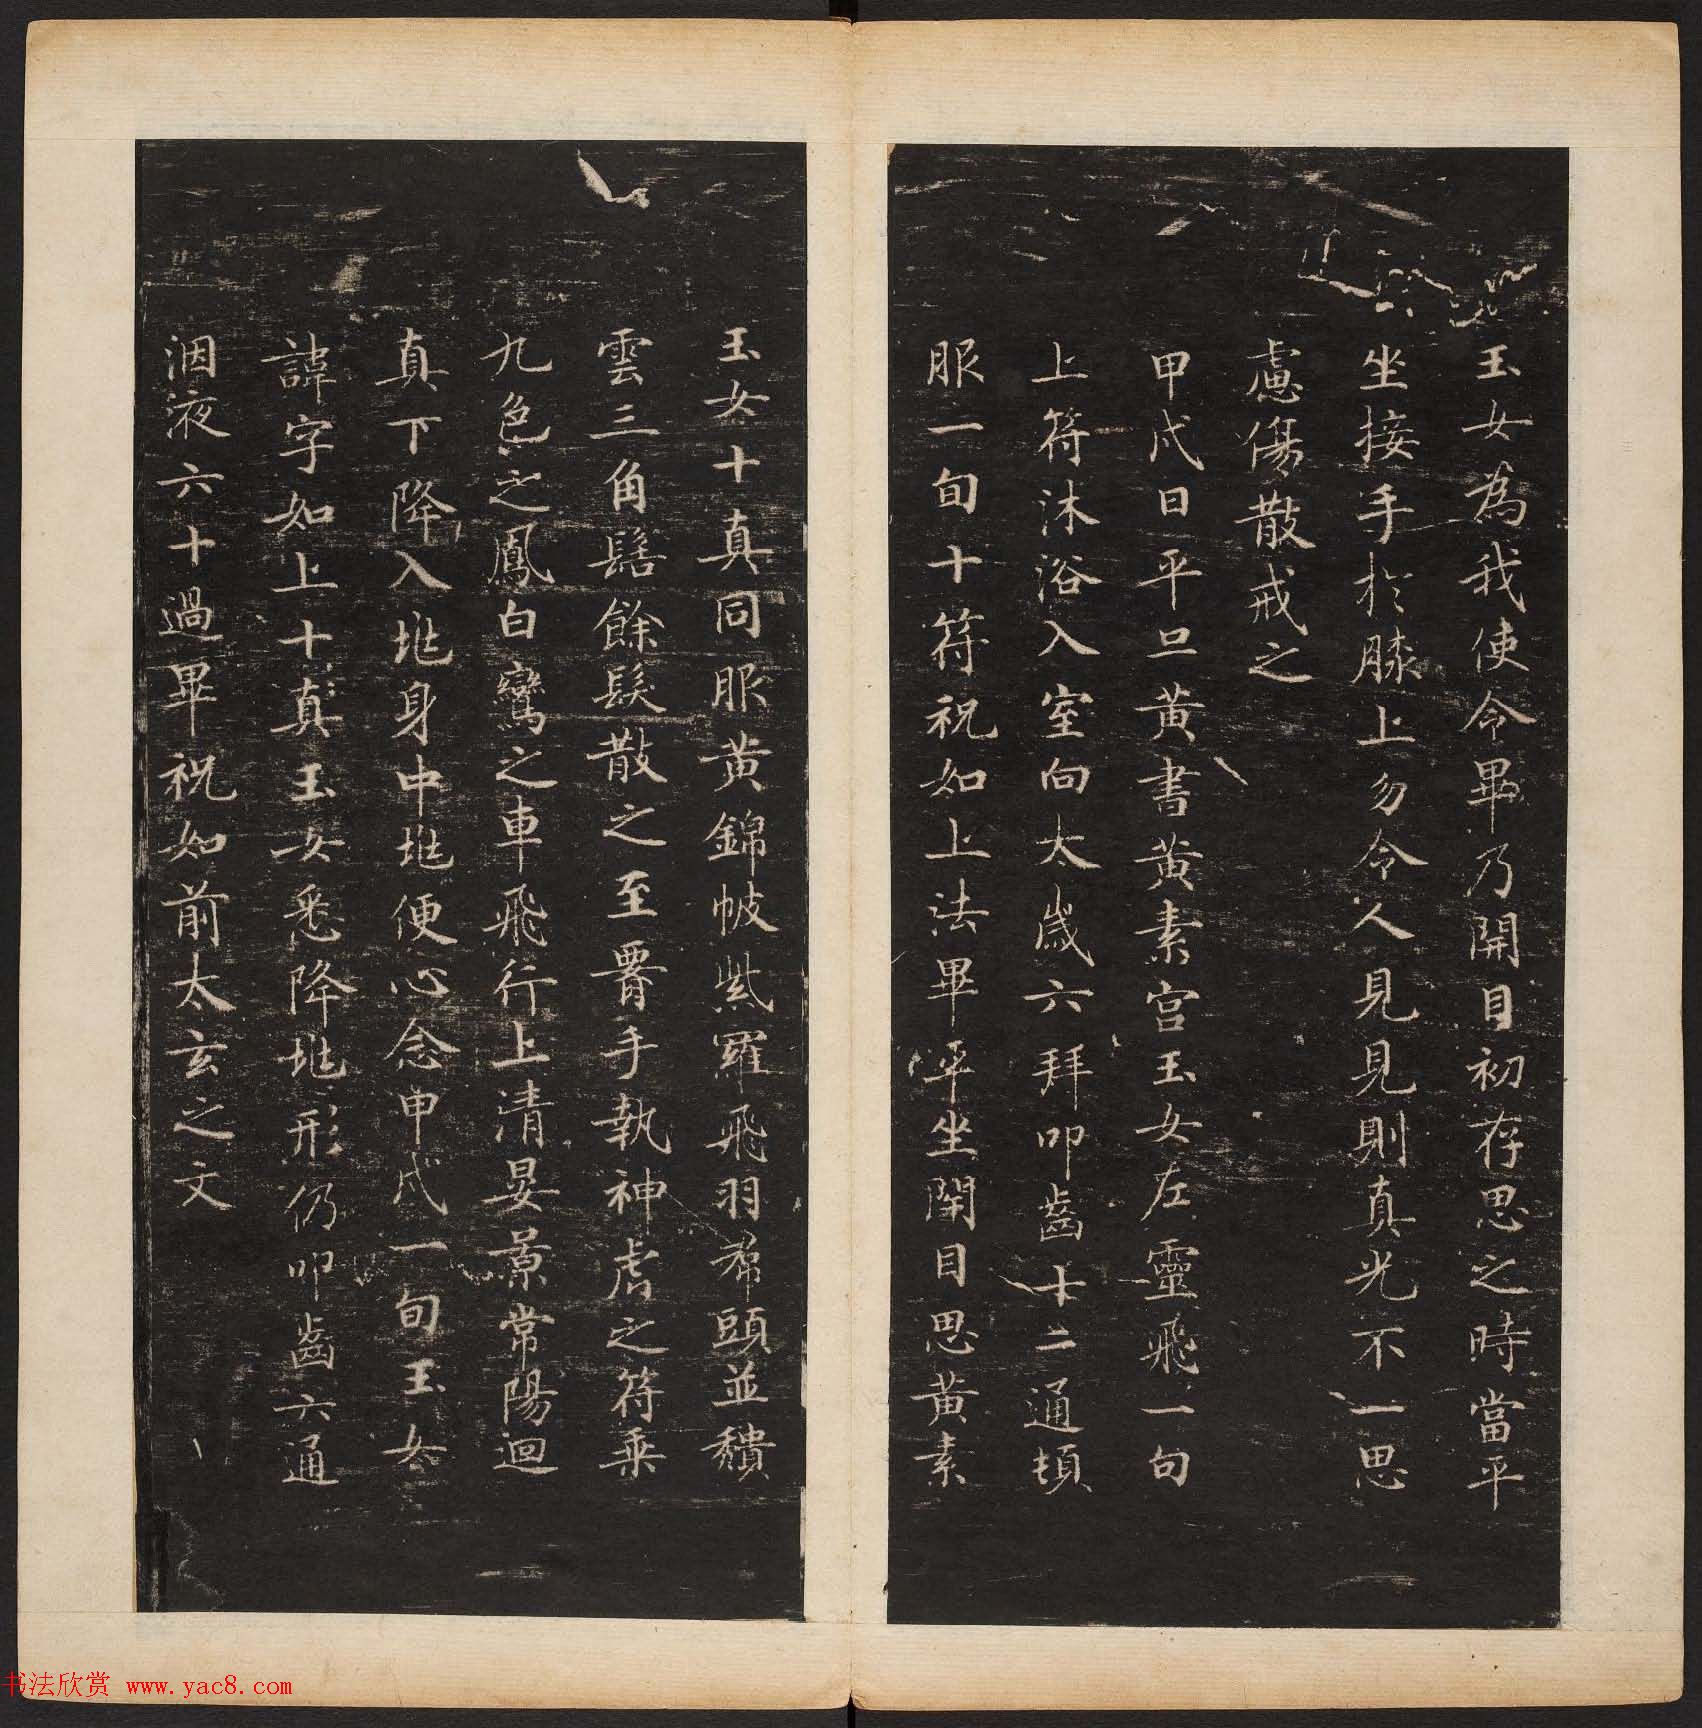 玉女為我使令畢乃開目初存思之時當平
坐接手於膝上勿令人見見則真光不一思
慮傷散戒之
甲戌日平旦黃書黃素宮玉女左靈飛一旬
上符沐浴入室向太歲六拜叩齒十二通頓
服一旬十符祝如上法畢平坐閇目思黃素
玉女十真同服黃錦帔紫羅飛羽帬頭並頹
雲三角髻餘髮散之至腰手執神虎之符乘
九色之鳳白鸞之車飛行上清晏景常陽迴
真下降入兆身中兆便心念甲戌一旬玉女
諱字如上十真玉女悉降兆形仍叩齒六通
洇液六十過畢祝如前太玄之文
书法欣赏 www.yac8.com